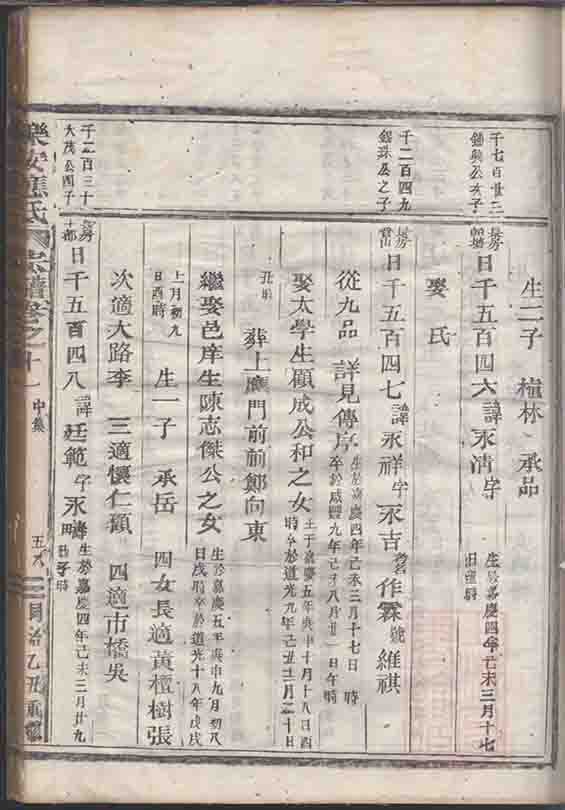 生二子 植林 承品
千七百廿三
錦興公次子
長房
日千五百四六 諱永清 字
生於嘉慶四年己未三月十七
日 時
娶氏
千二百四九
錫珠公之子
長房
日千五百四七 諱永祥 字永吉 名作霖 號維祺
從九品 詳見傳序
生於嘉慶四年己未三月十七日 時
卒於咸豐九年己未八月廿一日午時
娶太學生顧成公和之女
生于嘉慶五年庚申十月十八日酉
時 卒於道光九年己丑十二月二十日
丑時
葬上塵門前前鄭向東
繼娶邑庠生陳志傑公之女
生於嘉慶五年庚申九月初八
日戌時 卒於道光十八年戊戌
十月初九
日酉時
生一子 承岳 四女長適黃檀樹張
次適大路李 三適懷仁顧 四適市橋吳
千二百三十
大茂公四子
長房
十都
日千五百四八 諱廷範 字永
生於嘉慶四年己未三月廿九
日子時
樂安應氏宗譜卷之十一 中集 五 同治乙丑重